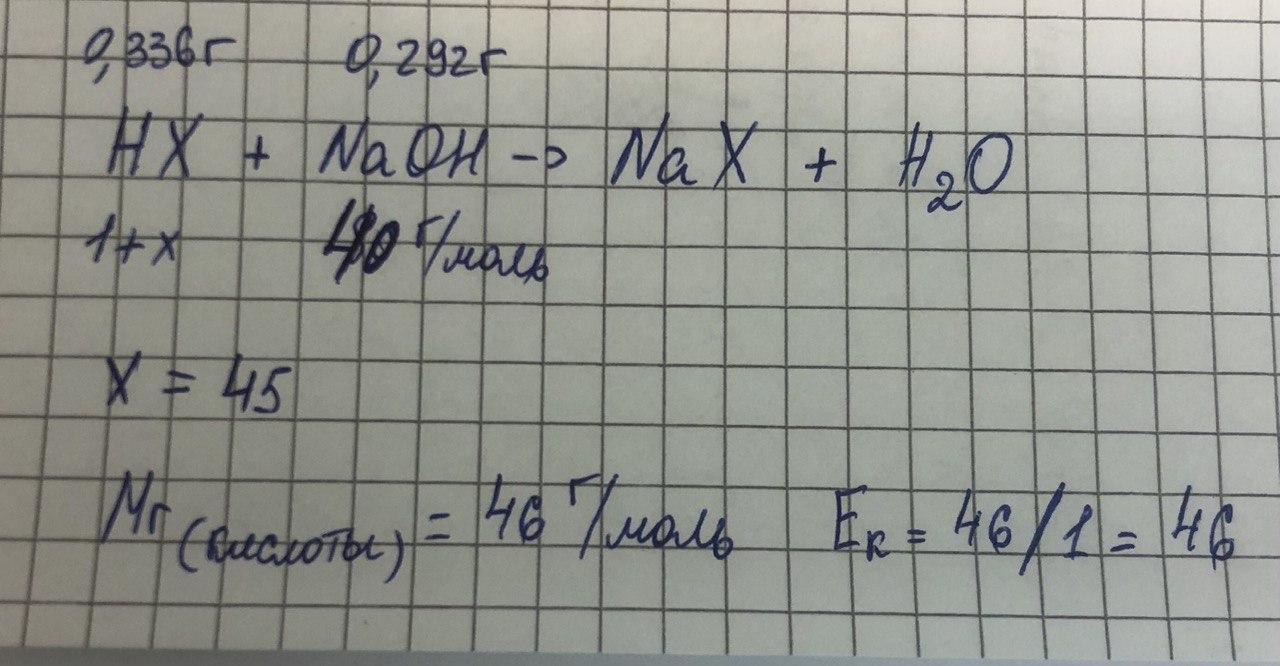 0,336г 0,292г
HX + NaOH → NaX + H₂O
1+x 40 г/моль
X = 45
Mr (кислоты) = 46 г/моль Eк = 46/1 = 46